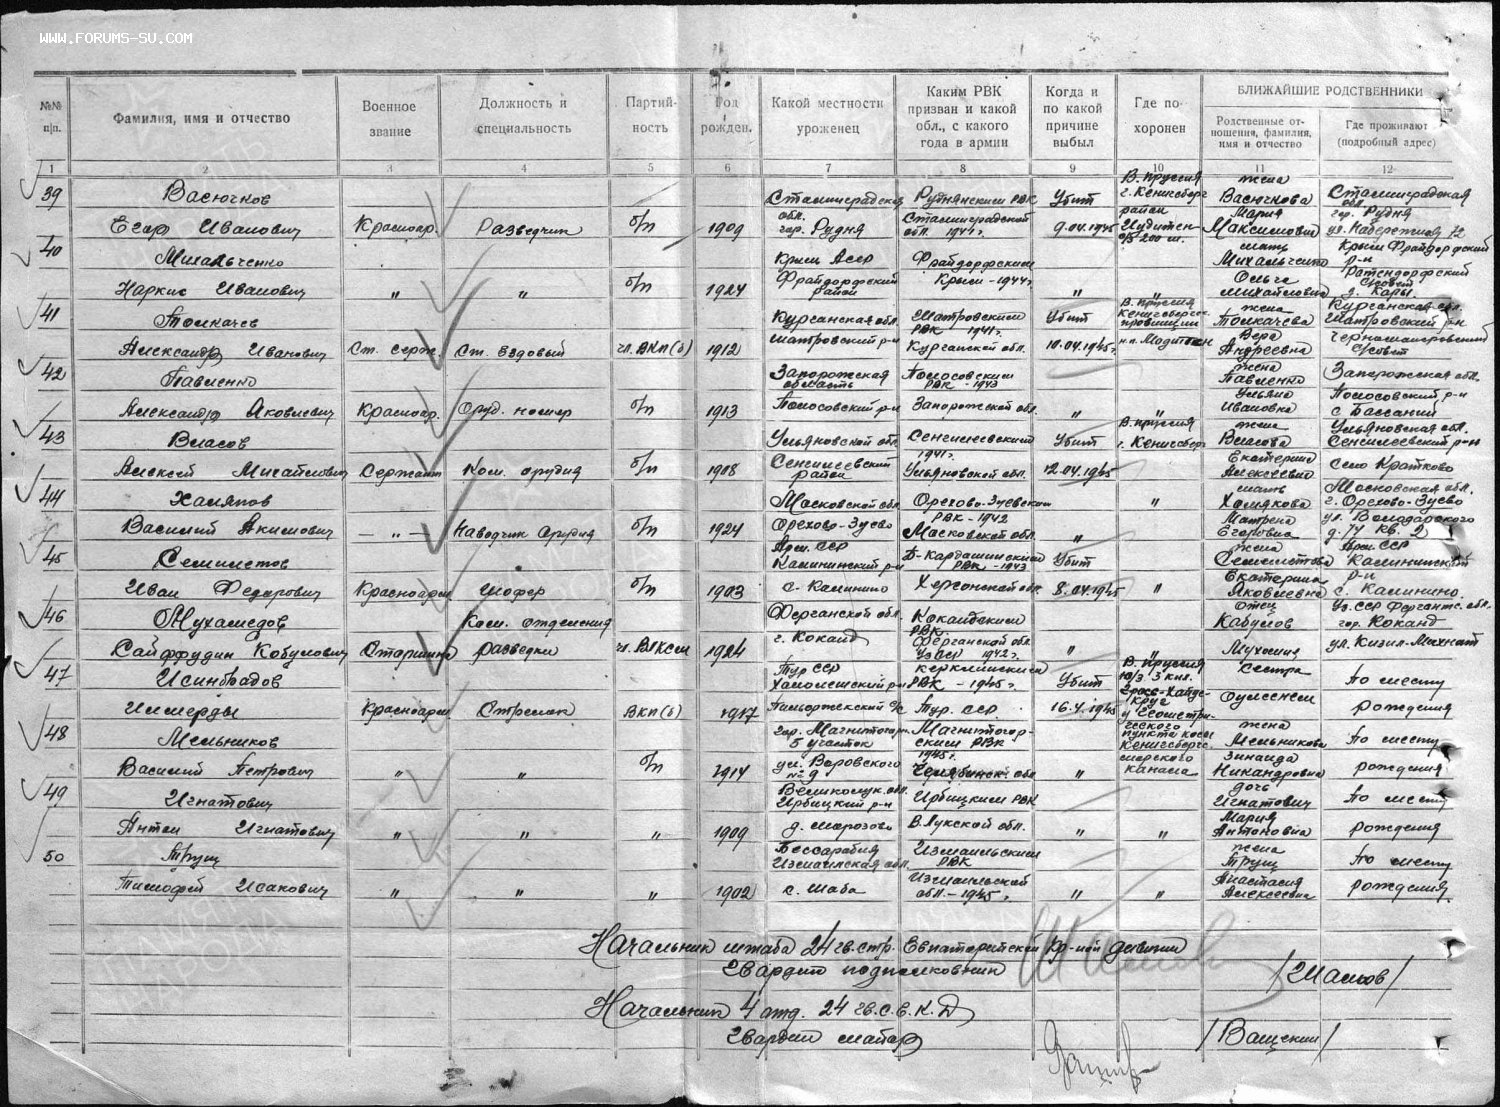 WWW.FORUMS-SU.COM
№№ п|п.
Фамилия, имя и отчество
Военное звание
Должность и специальность
Партий-ность
Год рожден.
Какой местности уроженец
Каким РВК призван и какой обл., с какого года в армии
Когда и по какой причине выбыл
Где по-хоронен
БЛИЖАЙШИЕ РОДСТВЕННИКИ
Родственные от-ношения, фамилия, имя и отчество
Где проживают (подробный адрес)
1 2 3 4 5 6 7 8 9 10 11 12
39 Васючков Егор Иванович Красноар. Разведчик б/п 1909 Сталинградская обл. гор. Рудня Руднянским РВК Сталинградской обл. 1941г. Убит 9.04.1945 В. Пруссия г. Кенигсберг район жена Васючкова Мария Максимовна Сталинградская обл. гор. Рудня ул. Набережная 72
40 Михальченко Наркис Иванович " " б/п 1924 Крым Асср Фрайдорфский район Фрайдорфским Крым - 1944г " " мать Михальченко Ольга Михайловна Крым Фрайдорфский р-н с/совет д. Кары
41 Толкачев Александр Иванович Ст. серж. Ст. ездовый чл. ВКП(б) 1912 Курганская обл. Шатровский р-н Шатровским РВК 1941г. Курганской обл. Убит 10.04.1945г. В. Пруссия Кенигсбергс. провинции н.п. жена Толкачева Вера Андреевна Курганская обл. Шатровский р-н с/совет
42 Павленко Александр Яковлевич Красноар. Оруд. номер б/п 1913 Запорожская область Пологовский р-н Пологовским РВК - 1943 Запорожской обл. " " жена Павленко Ульяна Ивановна Запорожская обл. Пологовский р-н с Бассань
43 Власов Алексей Михайлович Сержант Ком. орудия б/п 1908 Ульяновской обл. Сенгилеевский район Сенгилеевский 1941г. Ульяновской обл. Убит 12.04.1945 В. Пруссия г. Кенигсберг жена Власова Екатерина Алексеевна Ульяновская обл. Сенгилеевский р-н село Кратково
44 Хамяков Василий Акимович — " — Наводчик Орудия б/п 1924 Московской обл Орехово-Зуево Орехово-Зуевским РВК - 1942 Московской обл. " " мать Хамякова Матрена Егоровна Московская обл. г. Орехово-Зуево ул. Володарского
45 Семилетов Иван Федорович Красноарм Шофер б/п 1903 Арм. ССР Калининский р-н с. Калинино РВК - 1943 Херсонской обл Убит 8.04.1945 " жена Семилетова Екатерина Яковлевна Арм ССР Калининский р-н с. Калинино.
46 Мухамедов Сайффудин Кабулович Старшина Ком. отделения разведки чл. ВЛКСМ 1924 Ферганской обл. г. Коканд Кокандским РВК. Ферганской обл. Уз ССР 1942г. " " отец Кабулов Уз. ССР Ферганс. обл. гор. Коканд
47 Красноарм Стрелок ВКП(б) 1917 Тур ССР РВК - 1945г. Тур. ССР Убит 16.4.1945 В. Пруссия ю/з 3 клм. сестра По месту рождения
48 Мельников Василий Петрович " " б/п 1914 гор. Магнитогорск 5 участок ул. Воровского №9 Магнитогор-ским РВК 1945г. Челябинск обл " у Геометри-ческого пункта косы Кенигсбергс. морского канала жена Мельникова Зинаида Никандровна По месту рождения
49 Игнатович Антон Игнатович " " " 1909 Великолук. обл. д. Морозово РВК В. Лукской обл. " " дочь Игнатович Мария Антоновна По месту рождения
50 Трущ Тимофей Исакович " " " 1902 Бессарабия Измаильская обл. с. Шаба Измаильским РВК Измаильской обл. - 1945г. " " жена Трущ Анастасия Алексеевна По месту рождения
Начальник штаба 24 гв. стр. Евпаторийской Кр-ной дивизии
Гвардии подполковник
Начальник 4 отд. 24 гв. с. е. к. д
Гвардии майор /Ващекин/